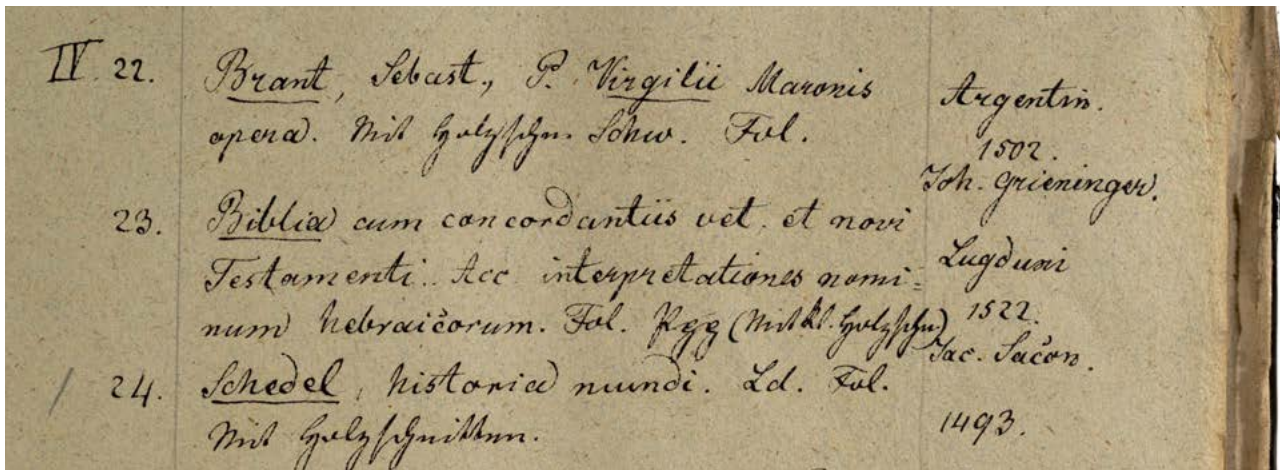 IV. 22. Brant, Sebast., P. Virgilii Maronis
opera. Mit Holzschn. Schw. Fol.
Argentin.
1502.
Joh. Grieninger.
23. Biblia cum concordantiis vet. et novi
Testamenti.. Acc interpretationes nomi=
num hebraicorum. Fol. Pgg (Mit kl. Holzschn.)
Lugduni
1522.
Jac. Sacon.
24. Schedel, historia mundi. Ld. Fol.
Mit Holzschnitten.
1493.